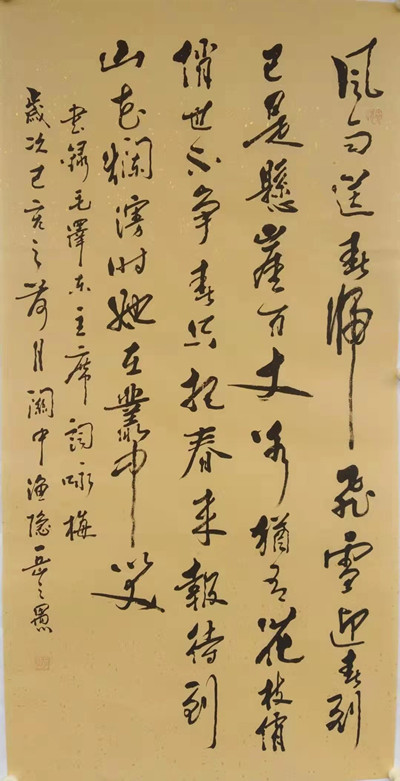 風雨送春歸飛雪迎春到
已是懸崖百丈冰猶有花枝俏
俏也不争春只把春来報待到
山花爛漫时她在叢中笑
书録毛澤东主席詞咏梅
歲次己亥之荷月關中渔隐